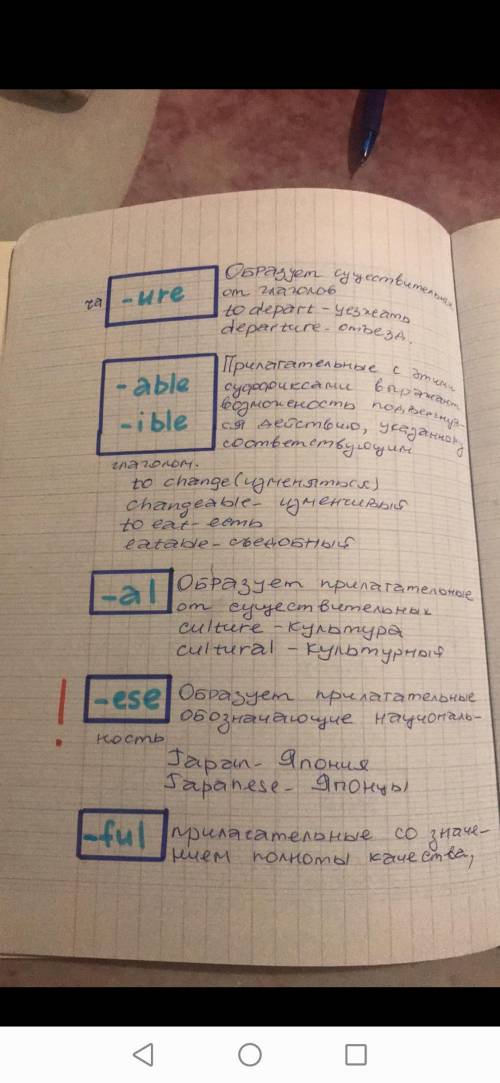 -ure
Образует существительные
от глаголов
to depart - уезжать
departure - отъезд.
-able
-ible
Прилагательные с этими
суффиксами выражают
возможность подвергнут-
ся действию, указанному
соответствующим
глаголом.
to change (изменяться)
changeable - изменчивый
to eat - есть
eatable - съедобный
-al
Образует прилагательные
от существительных
culture - культура
cultural - культурный
! -ese
Образует прилагательные
обозначающие националь-
ность
Japan - Япония
Japanese - Японцы
-ful
прилагательные со значе-
нием полноты качества,